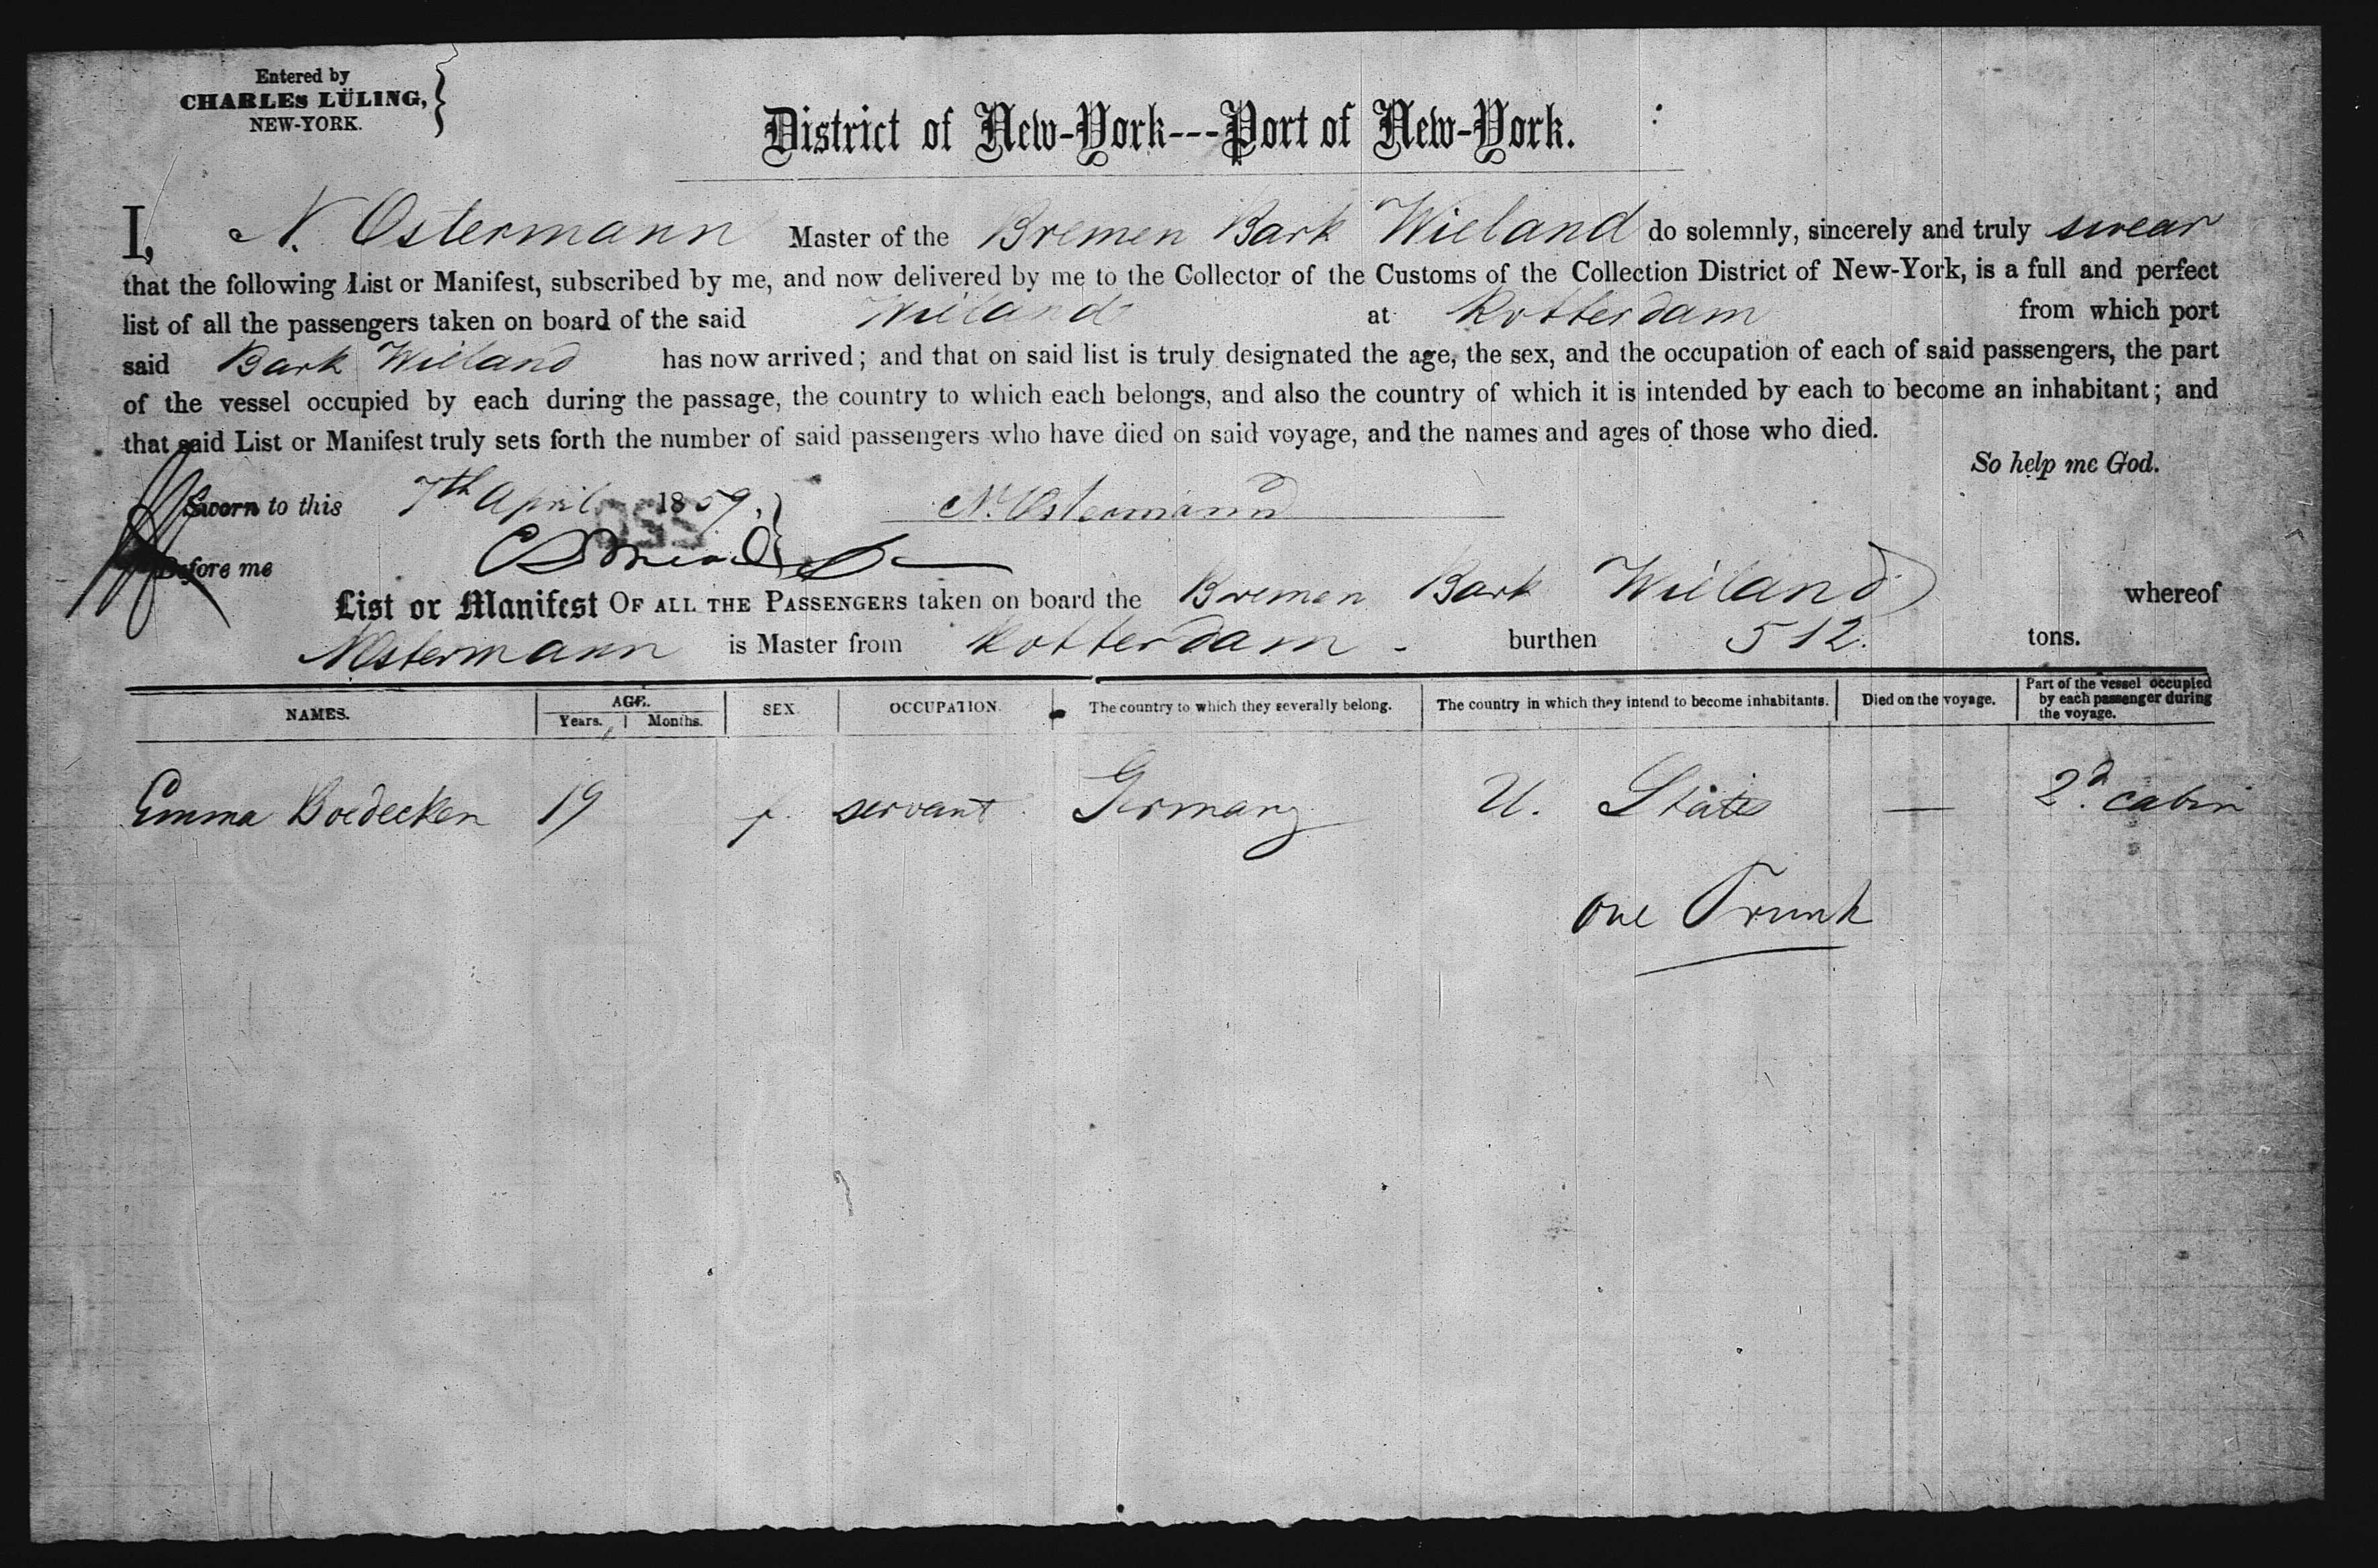 Entered by
CHARLES LÜLING,
NEW-YORK.
District of New-York---Port of New-York.
I, N. Ostermann Master of the Bremen Bark Wieland do solemnly, sincerely and truly swear
that the following List or Manifest, subscribed by me, and now delivered by me to the Collector of the Customs of the Collection District of New-York, is a full and perfect
list of all the passengers taken on board of the said Wieland at Rotterdam from which port
said Bark Wieland has now arrived; and that on said list is truly designated the age, the sex, and the occupation of each of said passengers, the part
of the vessel occupied by each during the passage, the country to which each belongs, and also the country of which it is intended by each to become an inhabitant; and
that said List or Manifest truly sets forth the number of said passengers who have died on said voyage, and the names and ages of those who died.
So help me God.
Sworn to this 7th April 1859. N. Ostermann
Before me
List or Manifest OF ALL THE PASSENGERS taken on board the Bremen Bark Wieland whereof
N Ostermann is Master from Rotterdam - burthen 512. tons.
NAMES. AGE. Years. Months. SEX. OCCUPATION. The country to which they severally belong. The country in which they intend to become inhabitants. Died on the voyage. Part of the vessel occupied by each passenger during the voyage.
Emma Boedecken 19 f. servant. Germany U. States — 2d. cabin
One Trunk